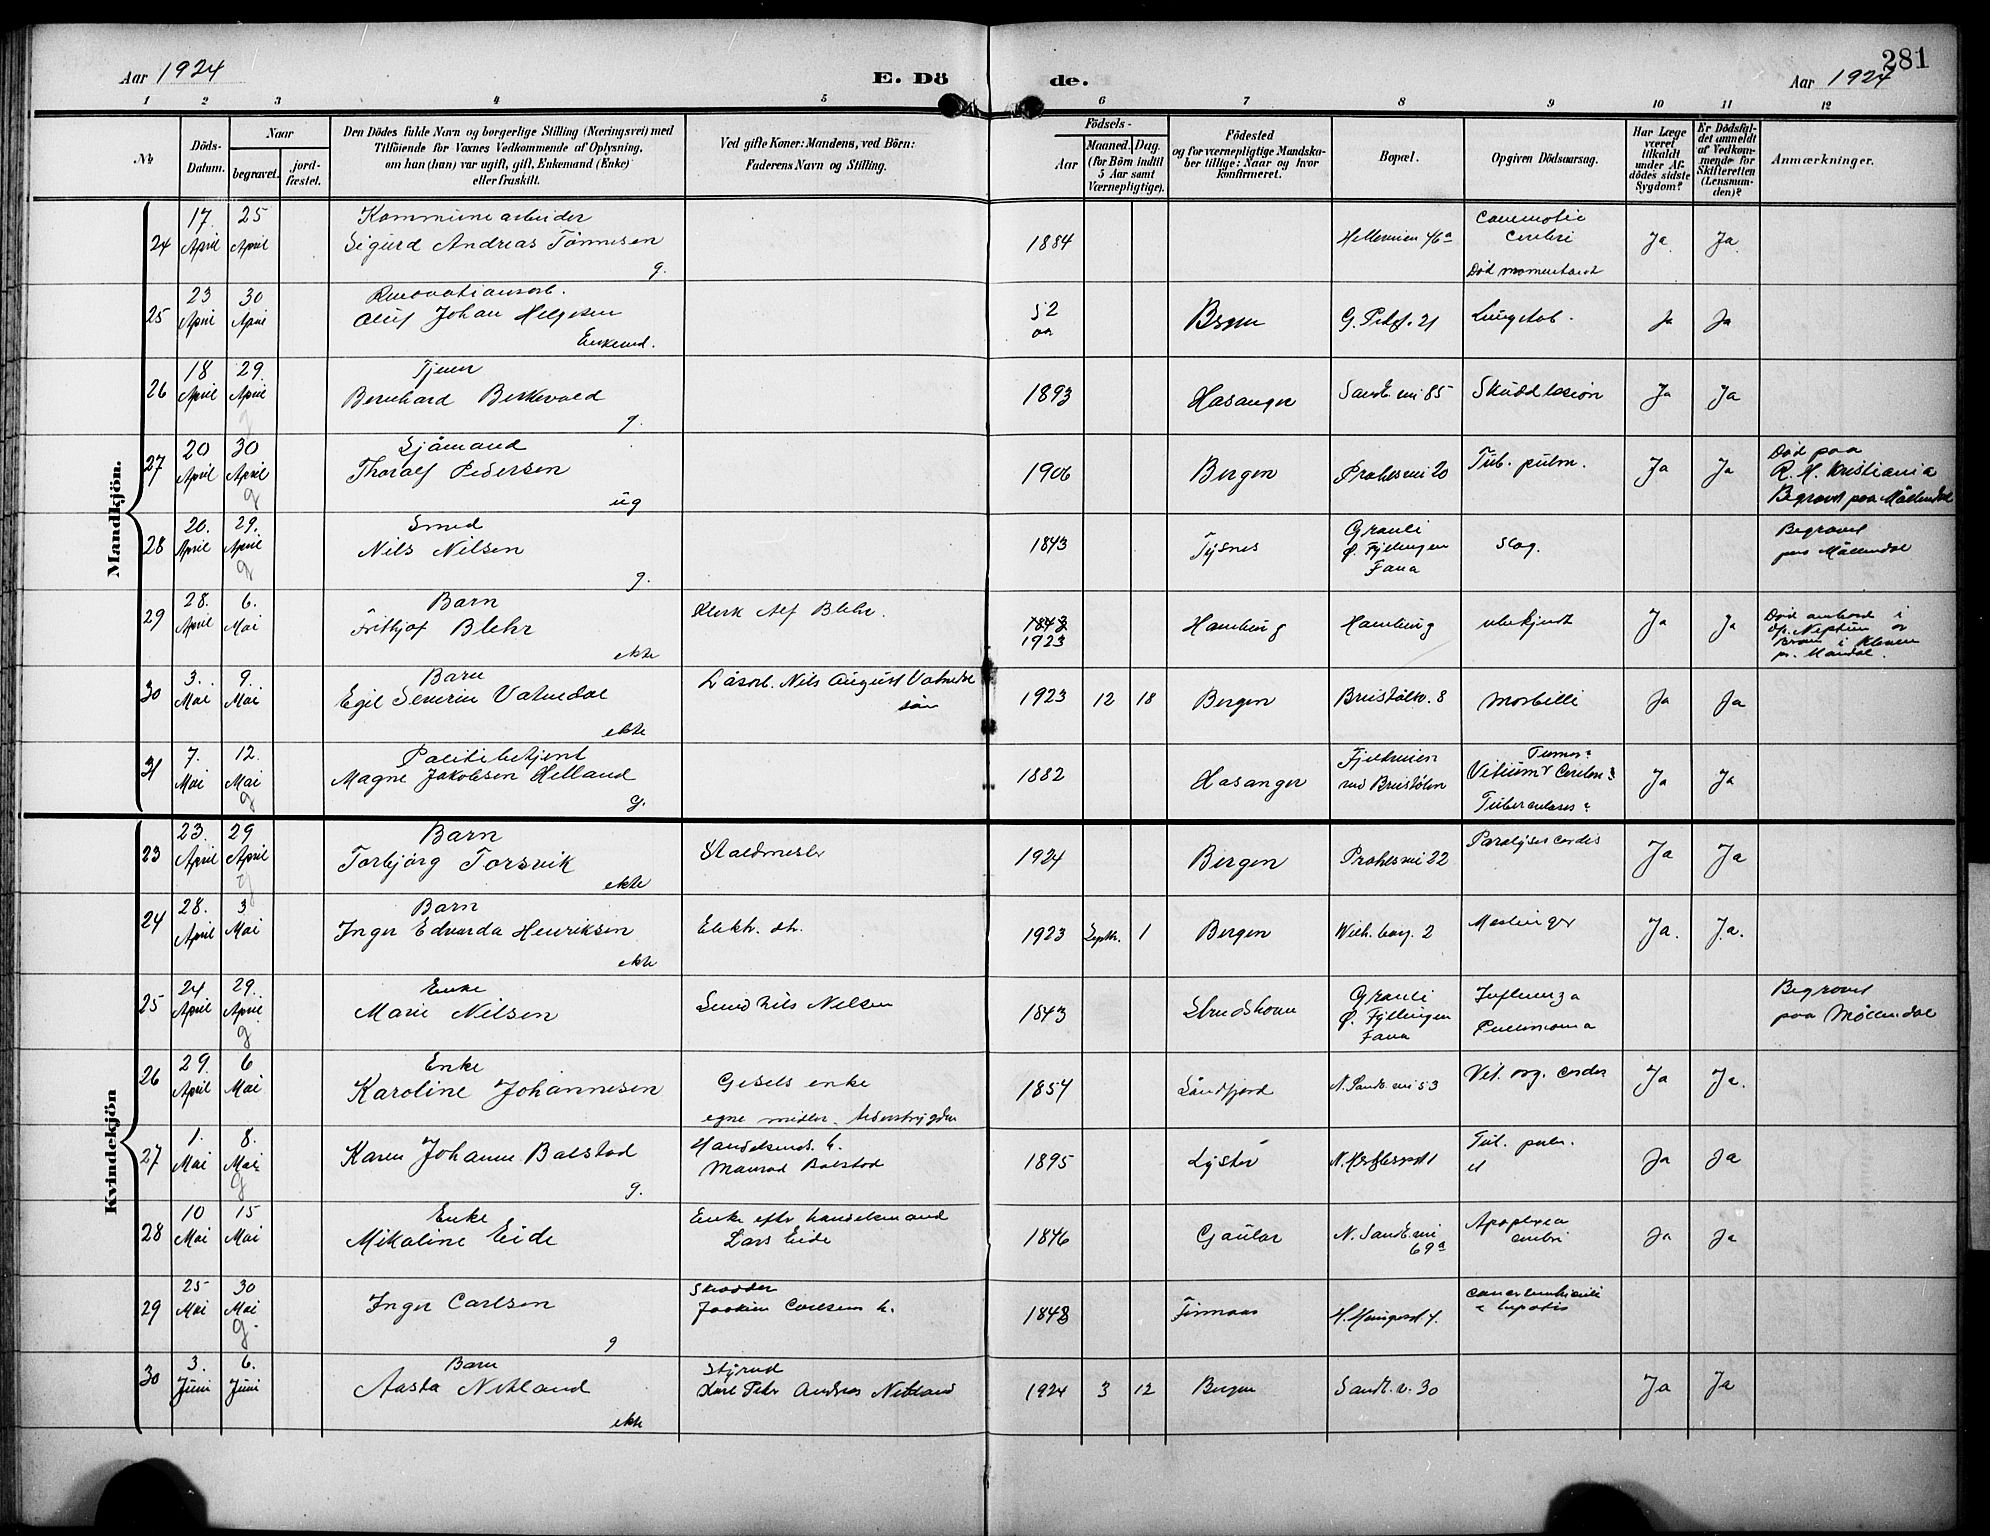 Aar 1924
E. Dö
de.
281
Aar 1924
1 2 3 4 5 6 7 8 9 10 11 12
No
Döds-Datum.
Naar
begravet.
jord-fæstet.
Den Dödes fulde Navn og borgerlige Stilling (Næringsvei) med
Tilföiende for Voxnes Vedkommende af Oplysning,
om han (hun) var ugift, gift, Enkemand (Enke)
eller fraskilt.
Ved gifte Koner: Mandens, ved Börn:
Faderens Navn og Stilling.
Födsels-
Aar
Maaned. Dag.
(for Börn indtil
5 Aar samt
Værnepligtige).
Födested
og for værnepligtige Mandska-
ber tillige: Naar og hvor
konfirmeret.
Bopæl.
Opgiven Dödsaarsag.
Har Læge
været
tilkaldt
under Af-
dödes sidste
Sygdom?
Er Dödsfal-
det anmeldt
af Vedkom-
mende for
Skifteretten
(Lensman-
den)?
Anmærkninger.
Mandkjön.
24 17. April 25 April Kommunearbeider
Sigurd Andreas Tönnesen
g.
1884 Helleveien 46a
Cerebri
Död momentant
Ja Ja
25 23 April 30 April
Oluf Johan Helgesen
Enkemd.
52 aar Bergen 21 Ja Ja
26 18 April 29 April Tjener
Bernhard Birkevold
g.
1893 Hosanger Sandv. vei 85 Skudd læsion Ja Ja
27 20 April 30 April Sjömand
Thoralf Pedersen
ug
1906 Bergen 20 Tub. pulm. Ja Ja
Död paa
R. H. Kristiania
Begravet paa Möllendal
28 20. April 29. April Smed
Nils Nilsen
g.
1843 Tysnes
Ö. Fyllingen
Fana
Slag.
Begravet
paa Möllendal
29 28. April 6. Mai Barn
Frithjof Blehr
ekte
Alf Blehr.
1843
1923
Hamburg Hamburg ubekjendt Ja Ja
Död ombord i
Neptun
Mandal.
30 3. Mai 9. Mai Barn
Egil Severin Vatnedal
ekte
Lösarb. Nils August Vatnedal
sön
1923 12 18 Bergen 8 Morbilli Ja Ja
31 7. Mai 12. Mai Politibetjent
Magne Jakobsen Helland
g.
1882 Hosanger Fjeldveien
Tumor?
Vitium? Cerebri?
Tuberculoses?
Ja Ja
Kvindekjön
23 23. April 29 April Barn
Torbjörg Torsvik
ekte
Staldmester
1924 Bergen 22 Paralyses cordis Ja Ja
24 28. April 3 Mai Barn
Inger Edvarda Henriksen
ekte
1923 Septbr. 1 Bergen 2 Meslinger Ja. Ja.
25 24 April 29. April Enke
Marie Nilsen
Smed Nils Nilsen
1843
Ö. Fyllingen
Fana
Influenza
Pneumonia
Begravet
paa Möllendal
26 29. April 6 Mai Enke
Karoline Johannesen
enke
egne midler. Alderstrygden
1854 Söndfjord N. Sandv. vei 53 Vit. org. cordis Ja Ja.
27 1. Mai 8. Mai Karen Johanne Balstad
g.
Balstad
1895 Lyster Tub. pulm. Ja Ja
28 10 Mai 15 Mai Enke
Mikaline Eide
Enke efter handelsmand
Lars Eide
1846 Gaular N. Sandv. vei
69a
Apoplexia
cerebri
Ja Ja
29 25 Mai 30 Mai
Inger Carlsen
g
Skrædder
Joakim Carlsens h.
1848
30 3. Juni 6. Juni Barn
Aasta Netland
ekte
Styrmd
Karl Peder Andreas Netland
1924 3 12 Bergen Sandv. v. 30 Ja Ja